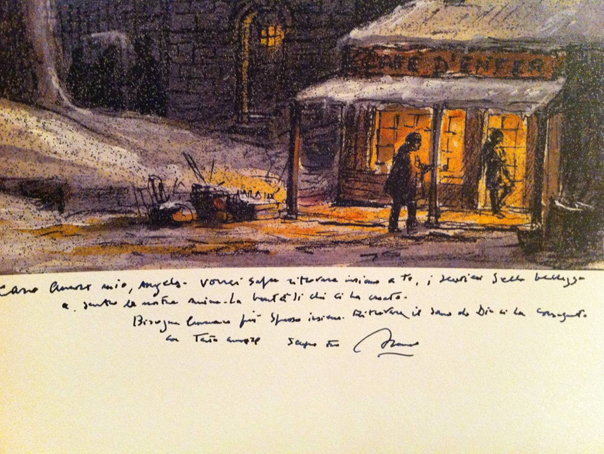 CAFE D'ENFER
Caro Amore mio, Angelo. Vorrei saper ritrovare insieme a te, i sentieri della bellezza
e sentire la nostra anima. La bontà di chi ci ha creato.
Bisogna più spesso insieme. Ritrovare il dono che Dio ci ha consegnato
con Tanto amore Sempre tuo